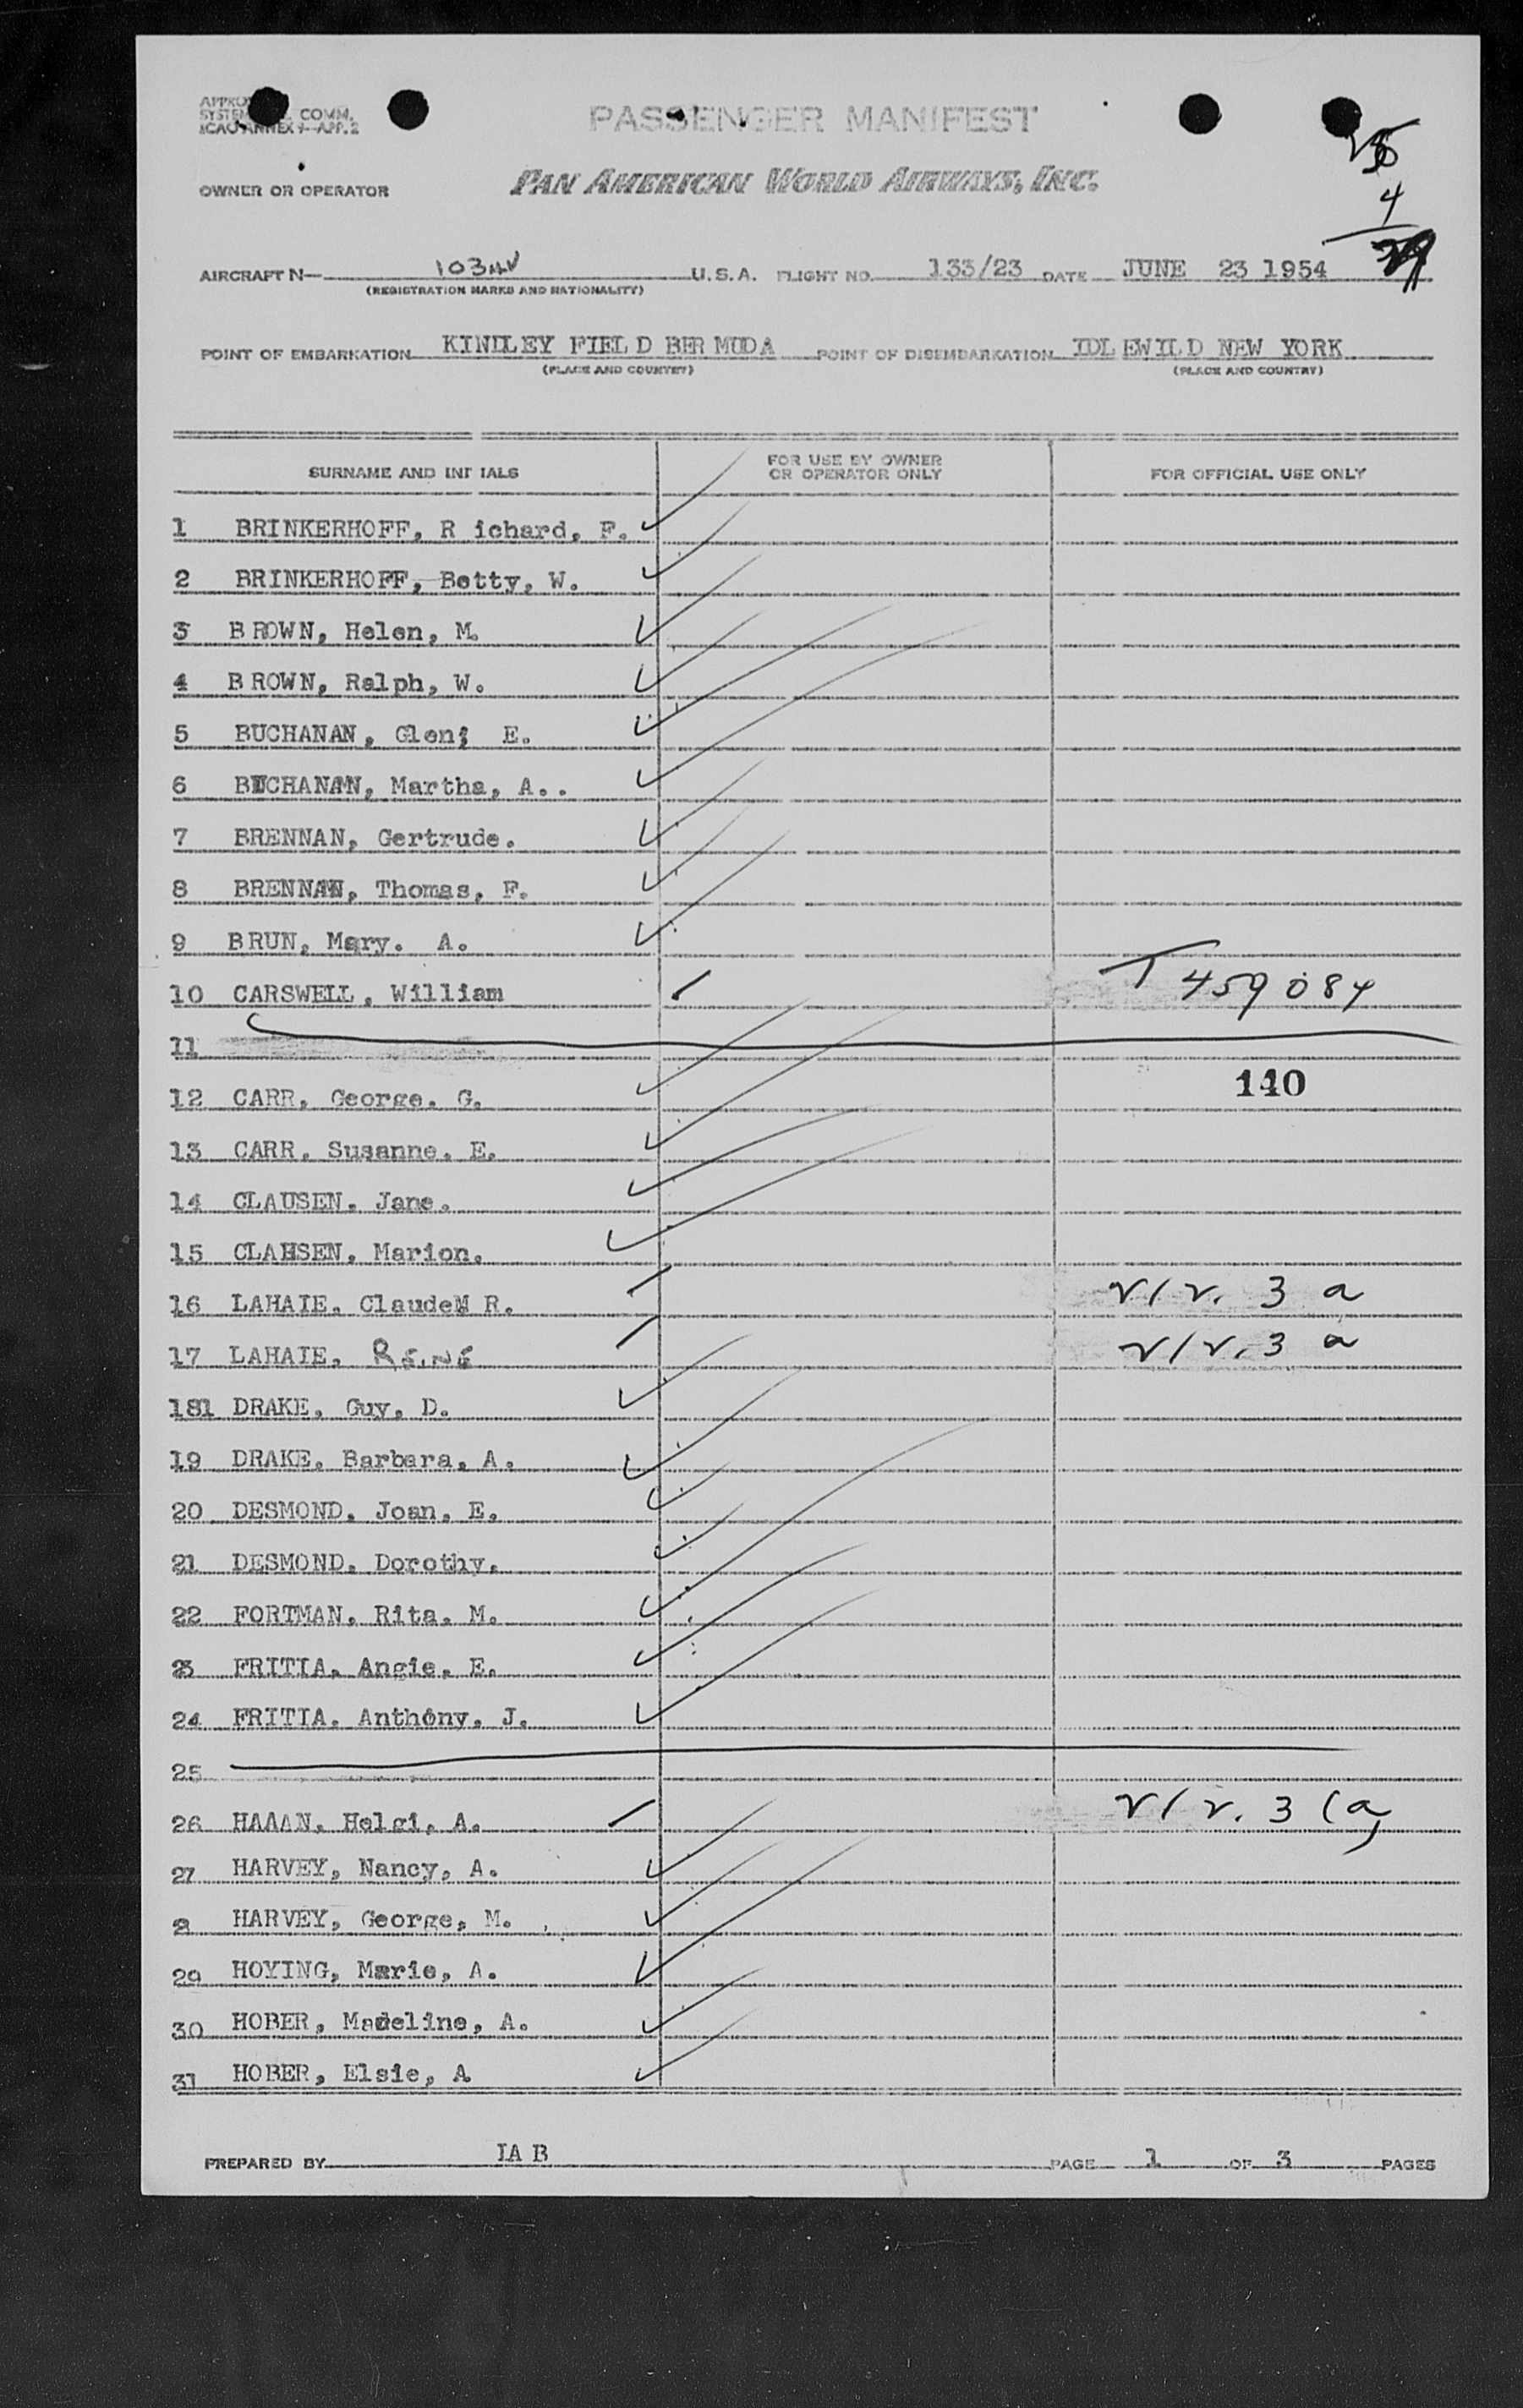 COMM.
ICAO ANNEX 9-APP. 2
PASSENGER MANIFEST
OWNER OR OPERATOR
PAN AMERICAN WORLD AIRWAYS, INC.
4
AIRCRAFT N— U.S.A. FLIGHT NO. 133/23 DATE JUNE 23 1954
(REGISTRATION MARKS AND NATIONALITY)
POINT OF EMBARKATION KINDLEY FIELD BERMUDA POINT OF DISEMBARKATION IDLEWILD NEW YORK
(PLACE AND COUNTRY) (PLACE AND COUNTRY)
SURNAME AND INITIALS FOR USE BY OWNER OR OPERATOR ONLY FOR OFFICIAL USE ONLY
1 BRINKERHOFF, R ichard, F.
2 BRINKERHOFF, Betty, W.
3 BROWN, Helen, M.
4 BROWN, Ralph, W.
5 BUCHANAN, Glen; E.
6 BUCHANAN, Martha, A..
7 BRENNAN, Gertrude.
8 BRENNAN, Thomas, F.
9 BRUN, Mary. A.
10 CARSWELL, William T 459084
11
140
12 CARR, George. G.
13 CARR. Susanne. E.
14 CLAUSEN. Jane.
15 CLAHSEN. Marion.
16 LAHAIE. ClaudeM R. V/V. 3 a
17 LAHAIE. V/V. 3 a
181 DRAKE. Guy. D.
19 DRAKE. Barbara. A.
20 DESMOND. Joan. E.
21 DESMOND. Dorothy.
22 FORTMAN. Rita. M.
23 FRITIA. Angie. E.
24 FRITIA. Anthony. J.
25
26 HAAAN. Helgi, A. V/V. 3 (a)
27 HARVEY, Nancy, A.
8 HARVEY, George, M.
29 HOYING, Marie, A.
30 HOBER, Madeline, A.
31 HOBER, Elsie, A
PREPARED BY IAB PAGE 1 OF 3 PAGES